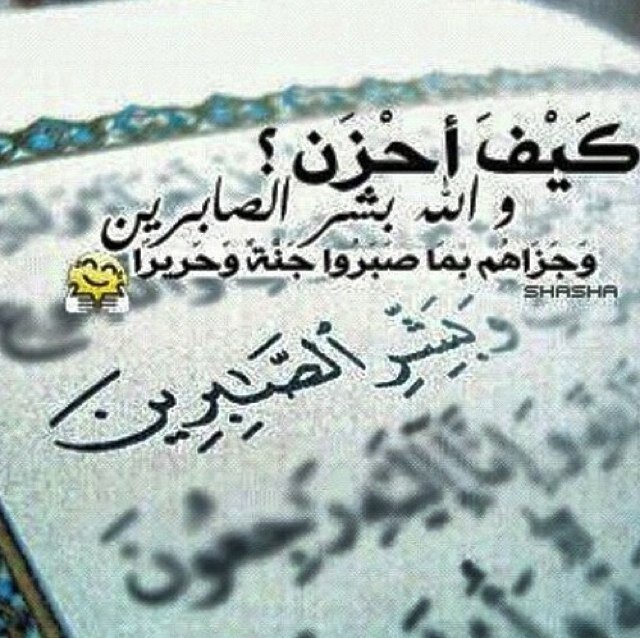 كَيْفَ أحْزَن ؟
و الله بشر الصابرين
وَجَزَاهُم بْمَا صَبَرُوا جَنْةً وَحَريرَا
SHASHA
وَبَشِّرِ ٱلصَّٰبِرِينَ